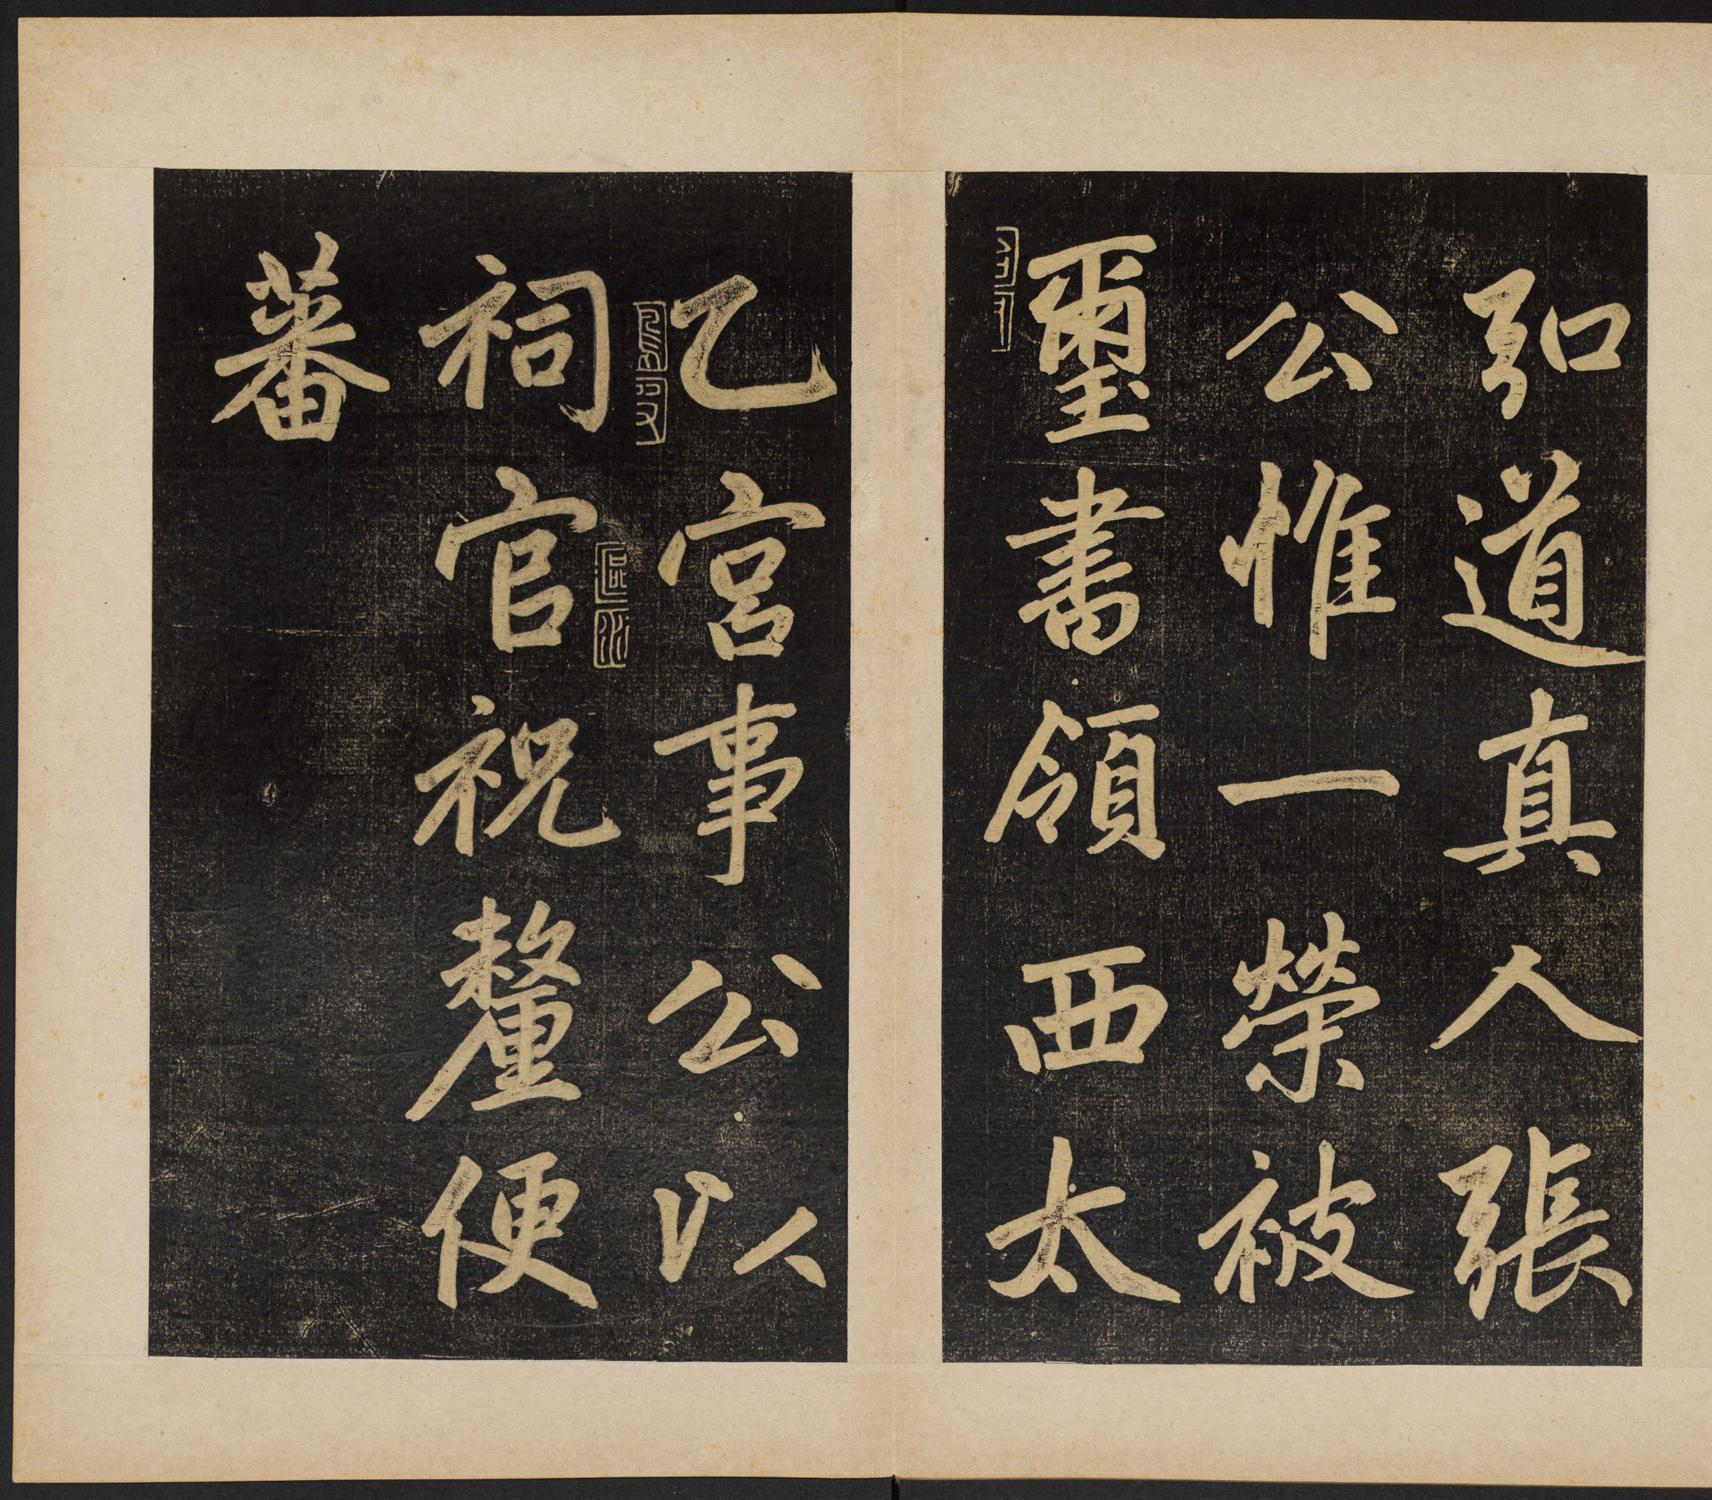 弘道真人張
公惟一榮被
璽書領西太
乙宮事公以
祠官祝釐便
蕃